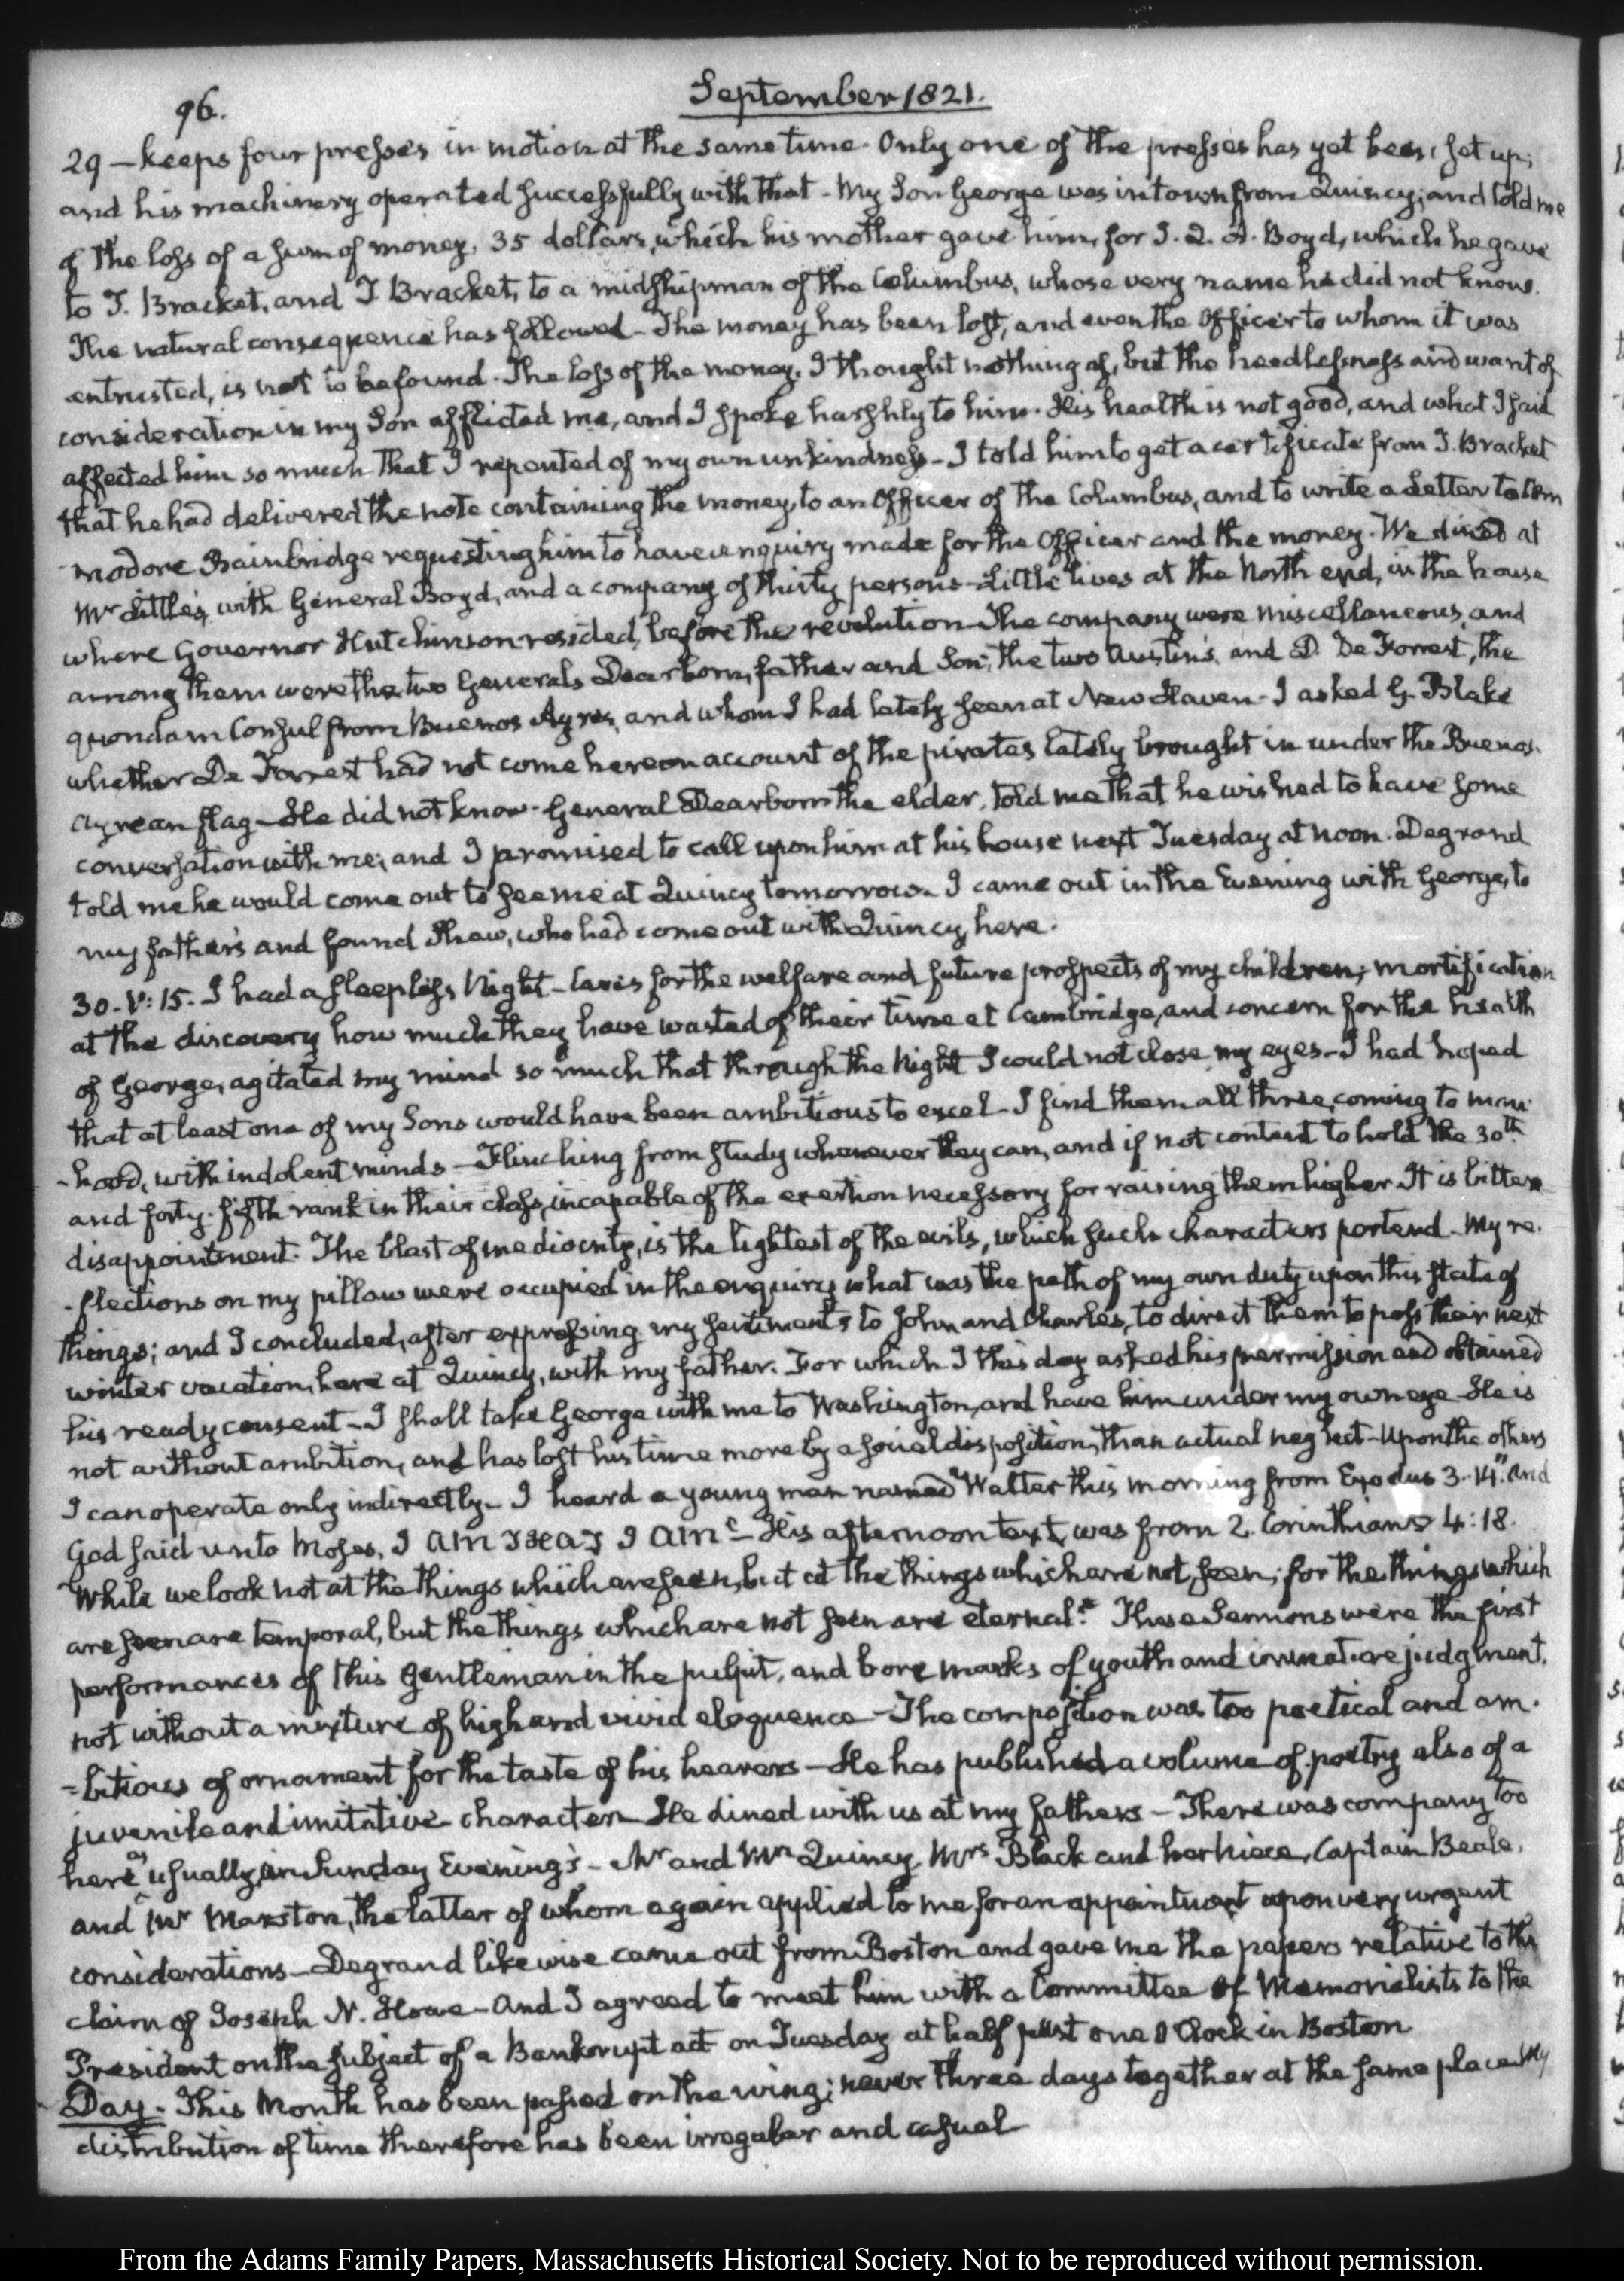 96.
September 1821.
29 — keeps four presses in motion at the same time. Only one of the presses has yet been set up;
and his machinery operated successfully with that — My Son George was in town from Quincy; and told me
of the loss of a sum of money, 35 dollars, which his mother gave him, for J. Q. A. Boyd, which he gave
to J. Bracket, and J Bracket, to a midshipman of the Columbus, whose very name he did not know.
The natural consequence has followed — The money has been lost, and even the Officer to whom it was
entrusted, is not to be found. The loss of the money, I thought nothing of, but the heedlessness and want of
consideration in my Son afflicted me, and I spoke harshly to him. His health is not good, and what I said
affected him so much that I repented of my own unkindness — I told him to get a certificate from J. Bracket
that he had delivered the note containing the money, to an Officer of the Columbus, and to write a Letter to Com
modore Bainbridge requesting him to have enquiry made for the Officer and the money. We dined at
Mr Little's with General Boyd, and a company of thirty persons — Little lives at the North end, in the house
where Governor Hutchinson resided, before the revolution — The company were miscellaneous, and
among them were the two Generals Dearborn, father and Son; the two Austin's, and D. De Forrest, the
quondam Consul from Buenos Ayres, and whom I had lately seen at New Haven — I asked G. Blake
whether De Forrest had not come here on account of the pirates lately brought in under the Buenos.
Ayrean flag — He did not know — General Dearborn the elder, told me that he wished to have some
conversation with me; and I promised to call upon him at his house next Tuesday at noon. Degrand
told me he would come out to see me at Quincy tomorrow — I came out in the Evening with George, to
my father's and found Shaw, who had come out with Quincy here.
30. V: 15. I had a sleepless Night — Cares for the welfare and future prospects of my children; mortification
at the discovery how much they have wasted of their time at Cambridge, and concern for the health
of George, agitated my mind so much that through the Night I could not close my eyes — I had hoped
that at least one of my Sons would have been ambitious to excel — I find them all three, coming to man
- hood, with indolent minds — Flinching from study whenever they can, and if not content to hold the 30th
and forty-fifth rank in their class, incapable of the exertion necessary for raising them higher — It is bitter
disappointment. The blast of mediocrity, is the lightest of the evils, which such characters portend — My re.
- flections on my pillow were occupied in the enquiry what was the path of my own duty upon this state of
things; and I concluded, after expressing my sentiments to John and Charles, to direct them to pass their next
winter vacation, here at Quincy, with my father. For which I this day asked his permission and obtained
his ready consent — I shall take George with me to Washington, and have him under my own eye — He is
not without ambition, and has lost his time more by a social disposition, than actual neglect — Upon the others
I can operate only indirectly — I heard a young man named Walter this morning from Exodus 3.14. "And
God said unto Moses, I AM THAT I AM" — His afternoon text, was from 2. Corinthians 4:18.
"While we look not at the things which are seen, but at the things which are not seen; for the things which
are seen are temporal, but the things which are not seen are eternal." These Sermons were the first
performances of this Gentleman in the pulpit, and bore marks of youth and immature judgment,
not without a mixture of high and vivid eloquence — The composition was too poetical and am.
=bitious of ornament for the taste of his hearers — He has published a volume of poetry also of a
juvenile and imitative character — He dined with us at my fathers — There was company too
here as usually in Sunday Evening's — Mr and Mrs Quincy, Mrs Black and her Niece, Captain Beale,
and Mr Marston, the latter of whom again applied to me for an appointment upon very urgent
considerations — Degrand likewise came out from Boston and gave me the papers relative to the
claim of Joseph N. Howe — And I agreed to meet him with a Committee of Memorialists to the
President on the subject of a Bankrupt act on Tuesday at half past one O'Clock in Boston
Day. This Month has been passed on the wing; never three days together at the same place. My
distribution of time therefore has been irregular and casual
From the Adams Family Papers, Massachusetts Historical Society. Not to be reproduced without permission.